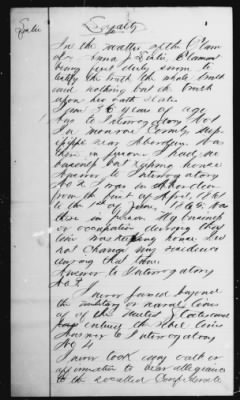 Loyalty
In the matter of the Claim
of Anna J. Claimant
being first duly sworn to
testify the truth the whole truth
and nothing but the truth
upon her oath states
I am 36 years of age
Ans to Interrogatory No 1
In Monroe County Miss
near Aberdeen. Was
there in person I had no
business but keeping house
Answer to Interrogatory
No 2 I was in Aberdeen
from the first of April 1861
to the 1st of June 1865. Was
there in person. My business
or occupation during that
time was keeping house. Did
not change my residence
during that time.
Answer to Interrogatory
No 3
I never passed beyond
the military or naval lines
of of the United States
entered the rebel lines
Answer to Interrogatory
No 4
I never took any oath or
affirmation to bear allegiance
to the so called Confederate